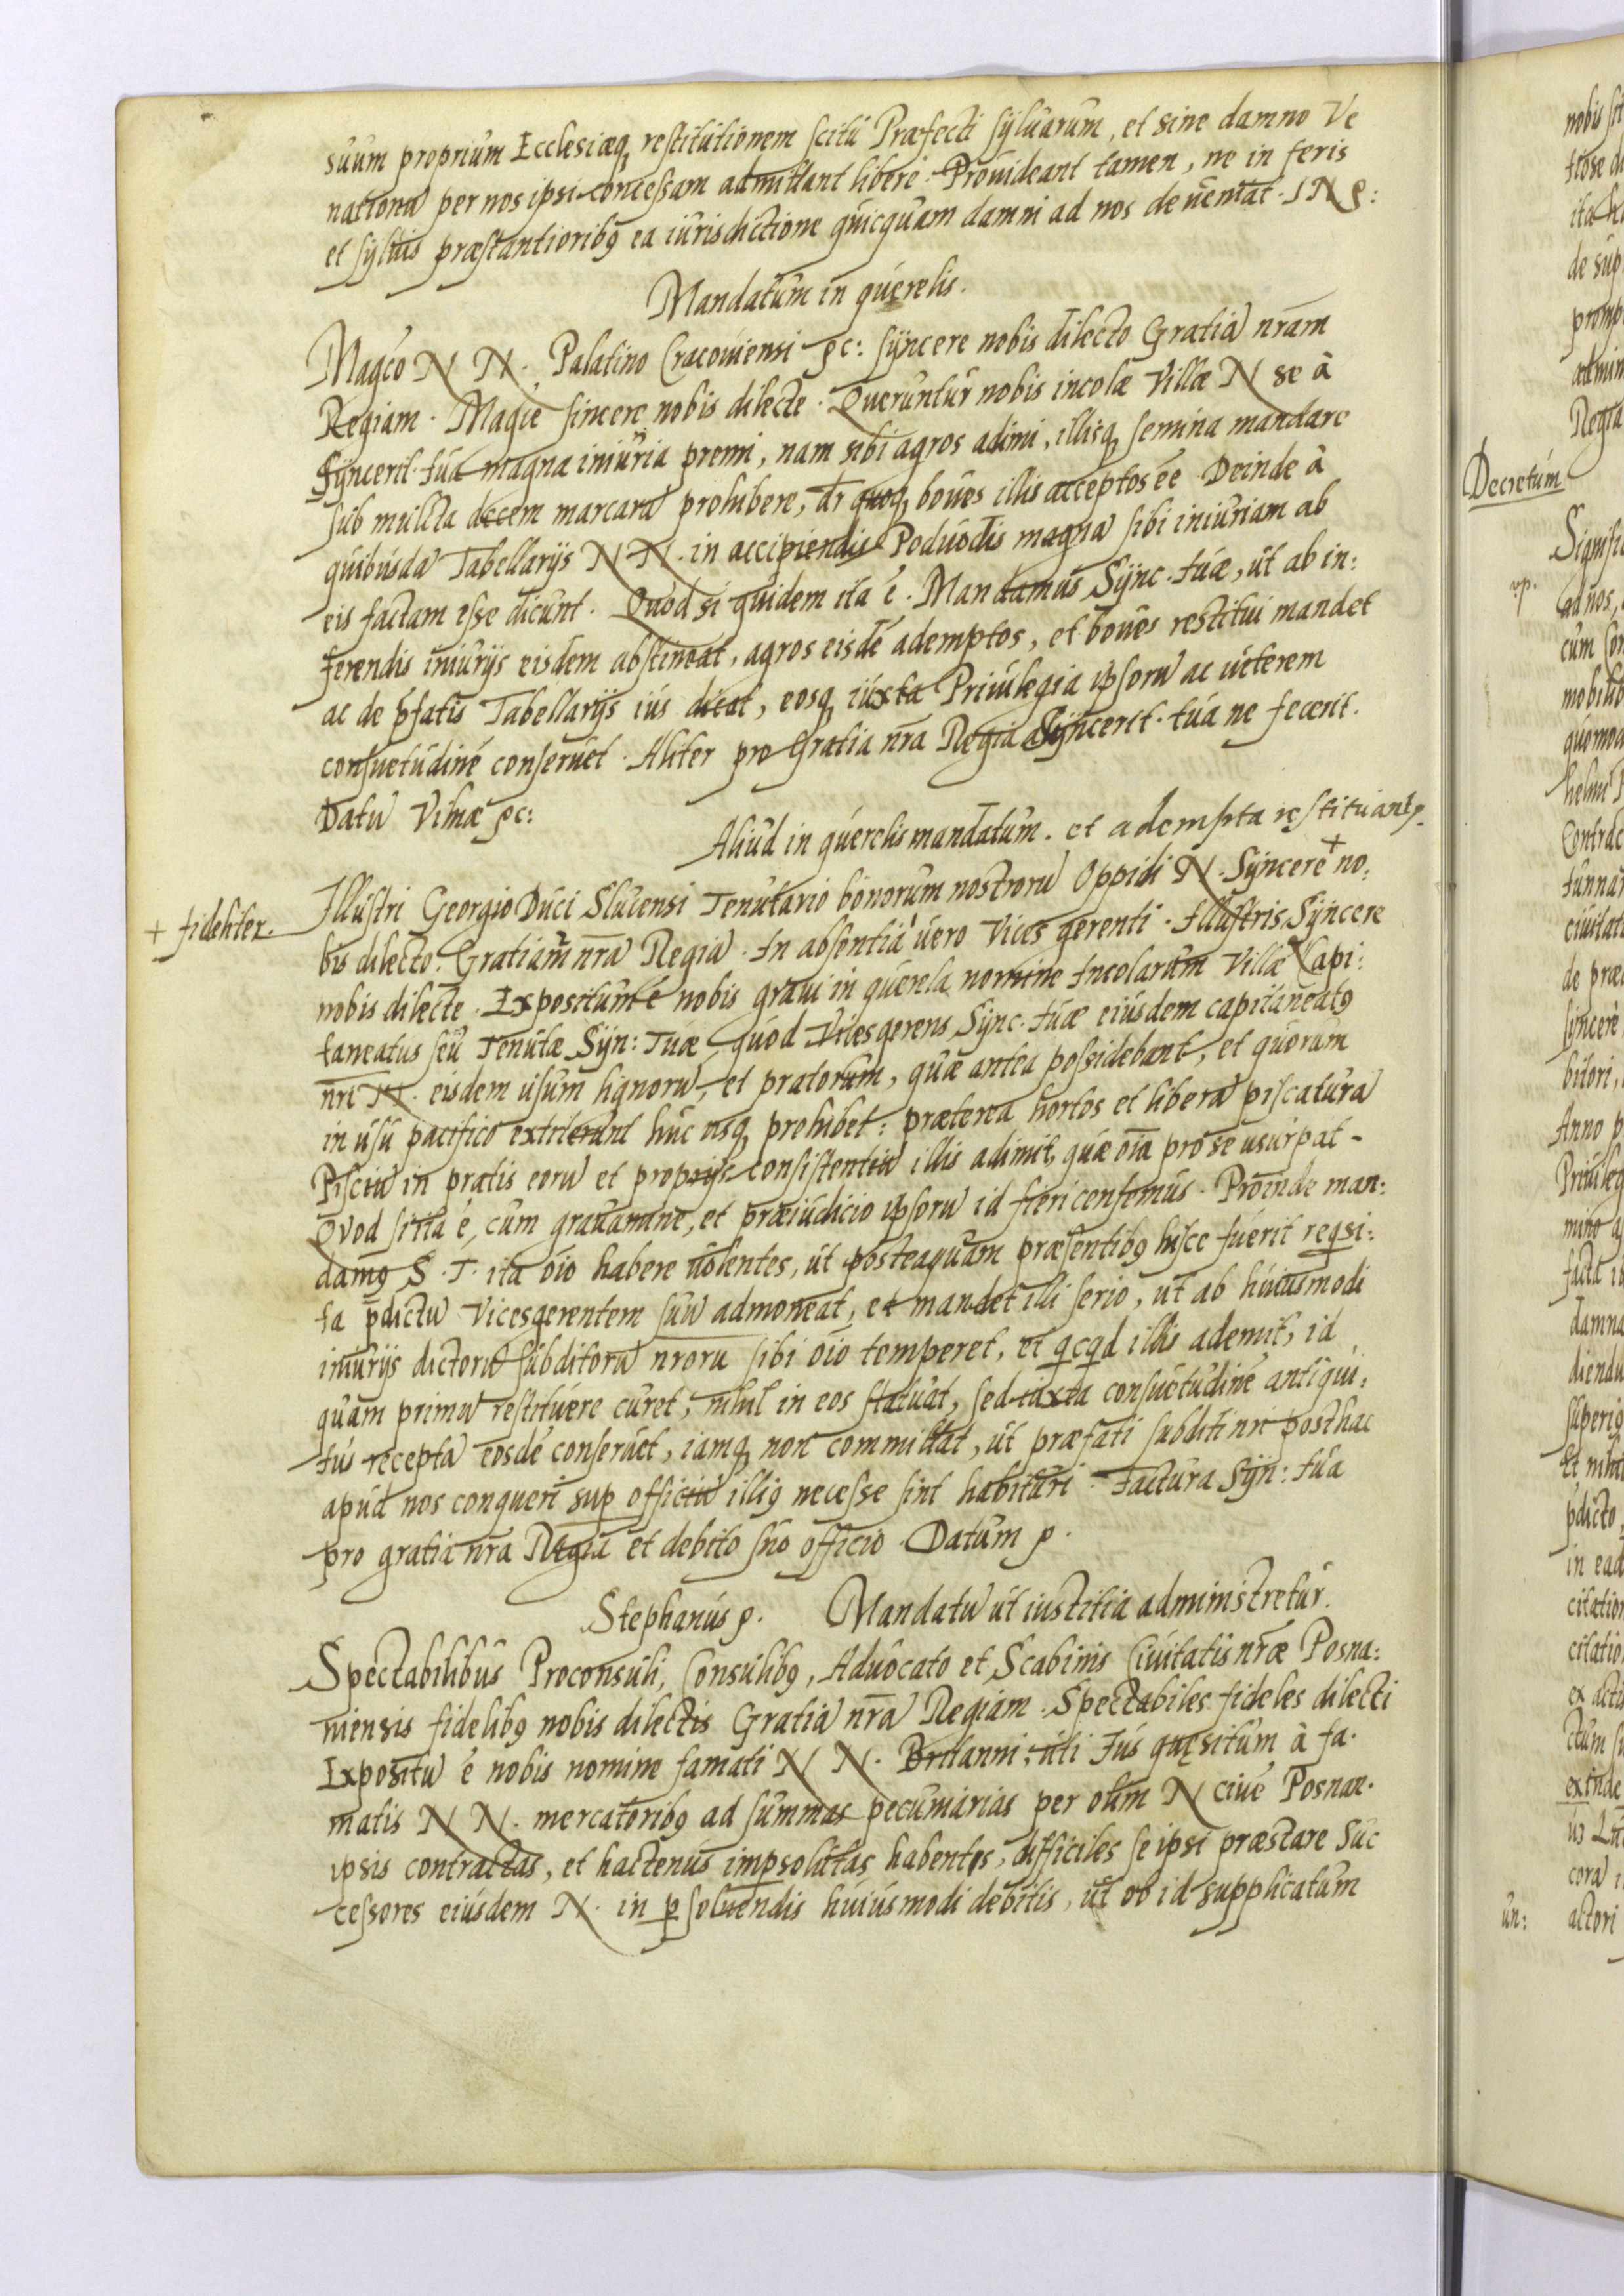 suum proprium Ecclesiæq; restitutionem scitu Præfecti syluarum, et sine damno Ve
nationũ per nos ipsi concessam admittant libere. Prouideant tamen, ne in feris
et syluis præstantioribꝰ ea iurisdictione quicquam damni ad nos deueniat. I N ꝛ:
Mandatum in querelis.
Magco N N. Palatino Cracouiensi ꝛc: syncere nobis dilecto Gratiã nr̃am
Regiam. Magce sincere nobis dilecte. Queruntur nobis incolæ Villæ N se à
Syncerit. tua magna iniuria premi, nam sibi agros adimi, illisq; semina mandare
sub mulcta decem marcarũ prohibere, dr̃ quoq; boues illis acceptos ee̅ Deinde à
quibusdã Tabellarijs N N. in accipiendis Poduodis magnã sibi iniuriam ab
eis factam esse dicunt. Quod si quidem ita é. Mandamus Sync. tuæ, ut ab in:
ferendis iniurijs eisdem abstineat, agros eisdẽ ademptos, et boues restitui mandet
ac de p̃fatis Tabellarijs ius dicat, eosq; iuxta Priuilegia ip̃sorũ ac ueterem
consuetudinẽ conseruet. Aliter pro Gratia nr̃a Regia Syncerit. tua ne fecerit.
Datũ Vilnæ ꝛc:
Aliud in querelis mandatum. et adempta restituant&#x72;.
Illustri Georgio Duci Slucensi Tenutario bonorum nostrorũ Oppidi N. Syncere + no:
+ fideliter.
bis dilecto. Gratiam nr̃ã Regiã. In absentia uero Vices gerenti. Illustris Syncere
nobis dilecte. Expositum é nobis graui in querela nomine Incolarum Villæ Capi:
taneatus seu Tenutæ Syn: Tuæ, quod Vicesgerens Sync. tuæ eiusdem capitaneatꝰ
nr̃i N. eisdem usum lignorũ, et pratorum, quæ antea possidebant, et quorum
in usu pacifico extiterunt huc usq; prohibet: præterea hortos et liberã piscaturã
Pisciũ in pratis eorũ et proprijs consistentiũ illis adimit, quæ oĩa pro se usurpat -
Qvod si ita é, cum grauamine, et præiudicio ip̃sorũ id fieri censemus. Proinde man:
damꝰ S. T. ita oĩo habere uolentes, ut posteaquam præsentibꝰ hisce fuerit reqsi:
ta p̃dictũ Vicesgerentem suũ admoneat, et mandet illi serio, ut ab huiusmodi
iniurijs dictorũ subditorũ nr̃orũ sibi oĩo temperet, et qcqd illis ademit, id
quam primũ restituere curet, nihil in eos statuat, sed iuxta consuetudinẽ antiqui:
tus receptã eosdẽ conseruet, iamq; non committat, ut præfati subditi nr̃i posthac
apud nos conqueri sup officiũ illiꝰ necesse sint habituri. Factura Syn: tua
pro gratia nr̃a Regia et debito suo officio. Datum ꝛ.
Stephanus ꝛ. Mandatũ ut iustitia administretur.
Spectabilibus Proconsuli, Consulibꝰ, Aduocato et Scabinis Ciuitatis nr̃æ Posna:
niensis fidelibꝰ nobis dilectis Gratiã nr̃ã Regiam. Spectabiles fideles dilecti
Expositũ é nobis nomine famati N N. Britanni, uti Ius quęsitum à fa.
matis N N. mercatoribꝰ ad summas pecuniarias per olim N ciuẽ Posnan.
ipsis contractas, et hactenus impsolutas habentis, difficiles se ipsi præstare Suc
cessores eiusdem N. in psoluendis huiusmodi debitis, ut ob id supplicatum
Decretum